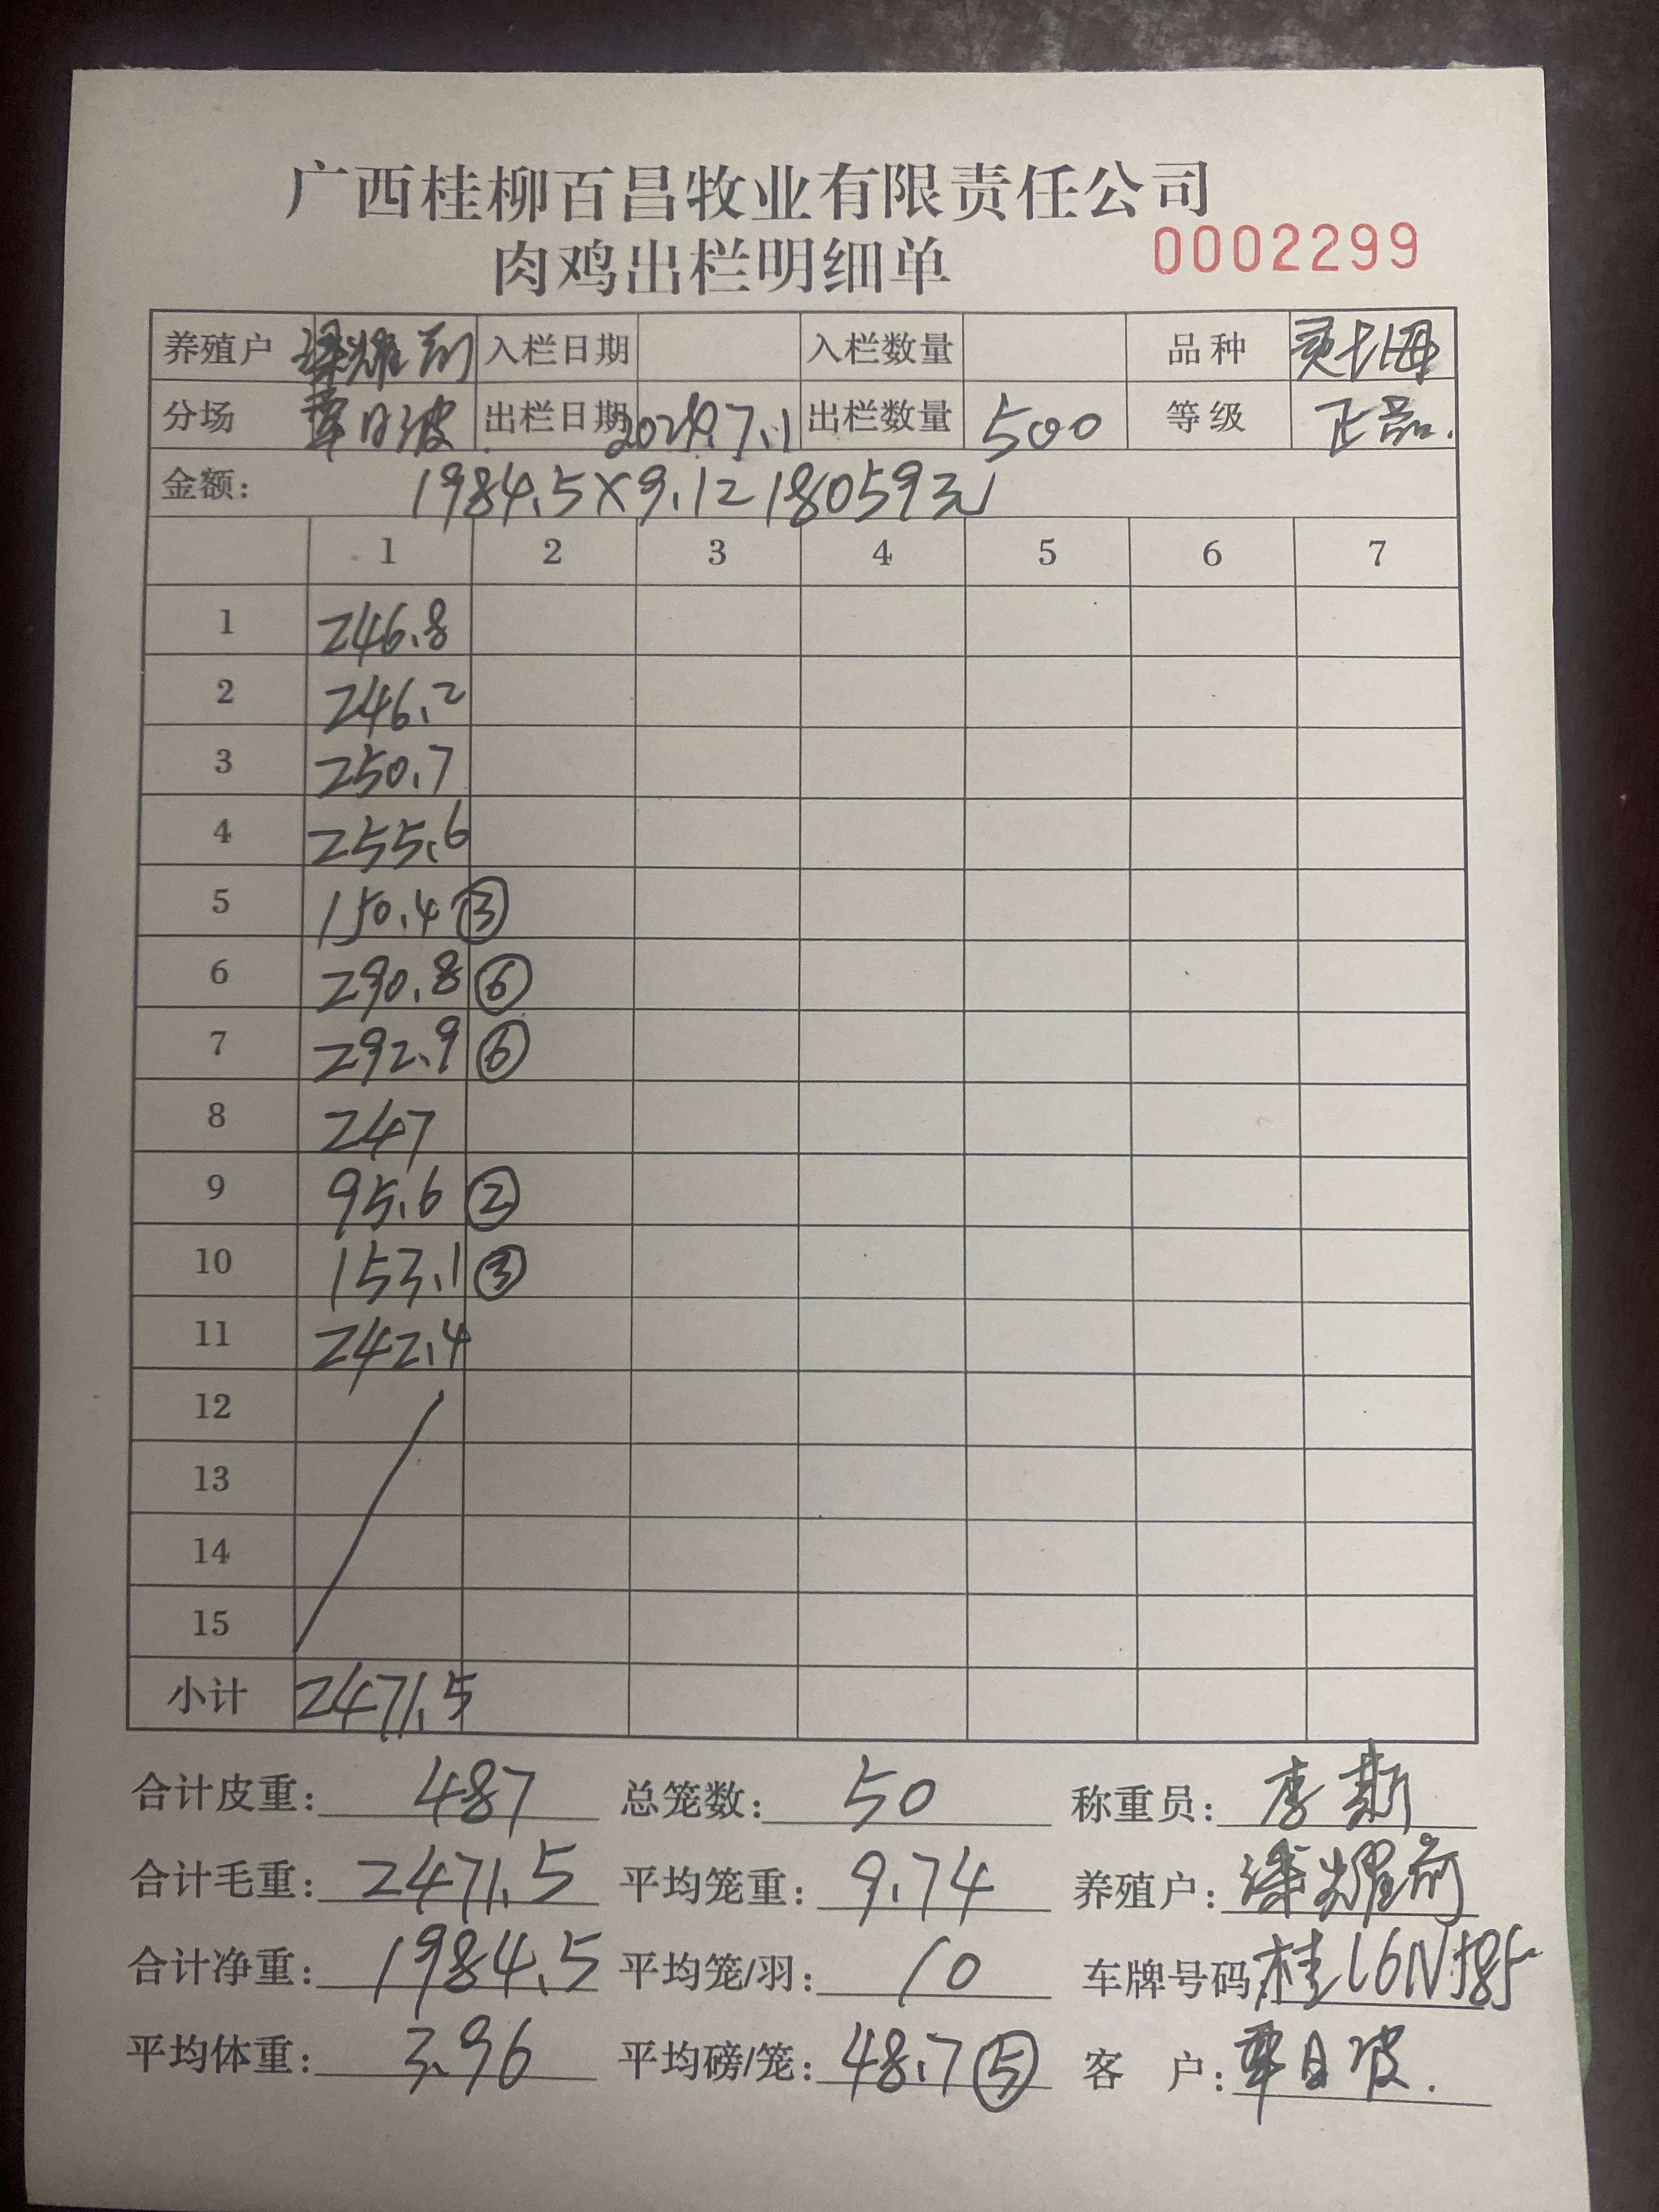 广西桂柳百昌牧业有限责任公司
肉鸡出栏明细单 0002299
养殖户 梁耀 入栏日期 入栏数量 品种
分场 覃日波 出栏日期 2024.7.1 出栏数量 500 等级 正品.
金额: 1984.5×9.1=18059元
1 2 3 4 5 6 7
1 246.8
2 246.2
3 250.7
4 255.6
5 150.4 ③
6 290.8 ⑥
7 292.9 ⑥
8 247
9 95.6 ②
10 153.1 ③
11 242.4
12
13
14
15
小计 2471.5
合计皮重: 487 总笼数: 50 称重员: 李
合计毛重: 2471.5 平均笼重: 9.74 养殖户: 梁耀
合计净重: 1984.5 平均笼/羽: 10 车牌号码 桂
平均体重: 3.96 平均磅/笼: 48.7 ⑤ 客 户: 覃日波.